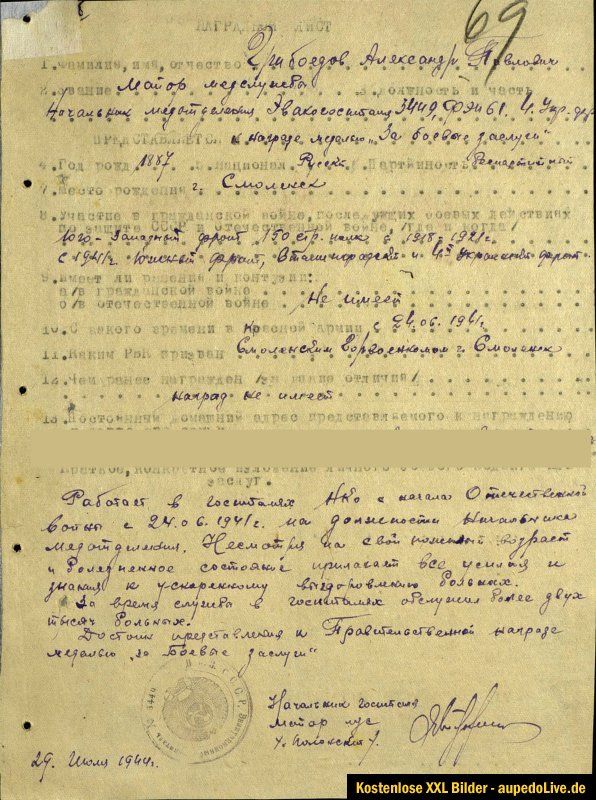 69
НАГРАДНОЙ ЛИСТ
1. Фамилия, имя, отчество Грибоедов Александр Павлович
2. Звание Майор медслужбы 3. должность и часть
Начальник медотделения Эвакогоспиталя 3449, ФЭП 61 4 Укр. фр
ПРЕДСТАВЛЯЕТСЯ к награде медалью „За боевые заслуги"
4. Год рожд. 1887 5. национал. Русск. Партийность Беспартийный
7. Место рождения г. Смоленск
8. Участие в гражданской войне, последующих боевых действиях
по защите СССР и отечественной войне, /где и когда/
Юго-Западный фронт 150 стр. полк с 1918-1921г
с 1941г. Южный фронт, Сталинградский и 4й Украинский фронт
9. Имеет ли ранения и контузии:
а/в гражданской войне
б/в отечественной войне Не имеет
10. С какого времени в Красной армии с 24.06.1941г
11. Каким РВК призван Смоленским Горвоенкомом г. Смоленск
12. Чем ранее награжден /за какие отличия/
наград не имеет
13. Постоянный домашний адрес представляемого к награждению
Краткое, конкретное изложение личного боевого
заслуг.
Работает в госпиталях НКО с начала Отечественной
войны с 24.06.1941г. на должности Начальника
медотделения. Несмотря на свой пожилой возраст
и болезненное состояние прилагает все усилия и
знания к ускоренному выздоровлению больных.
За время службы в госпиталях обслужил более двух
тысяч больных.
Достоин представления к Правительственной награде
медалью „за боевые заслуги"
Начальник госпиталя
Майор м/с
29. Июля 1944г.
Kostenlose XXL Bilder - aupedoLive.de